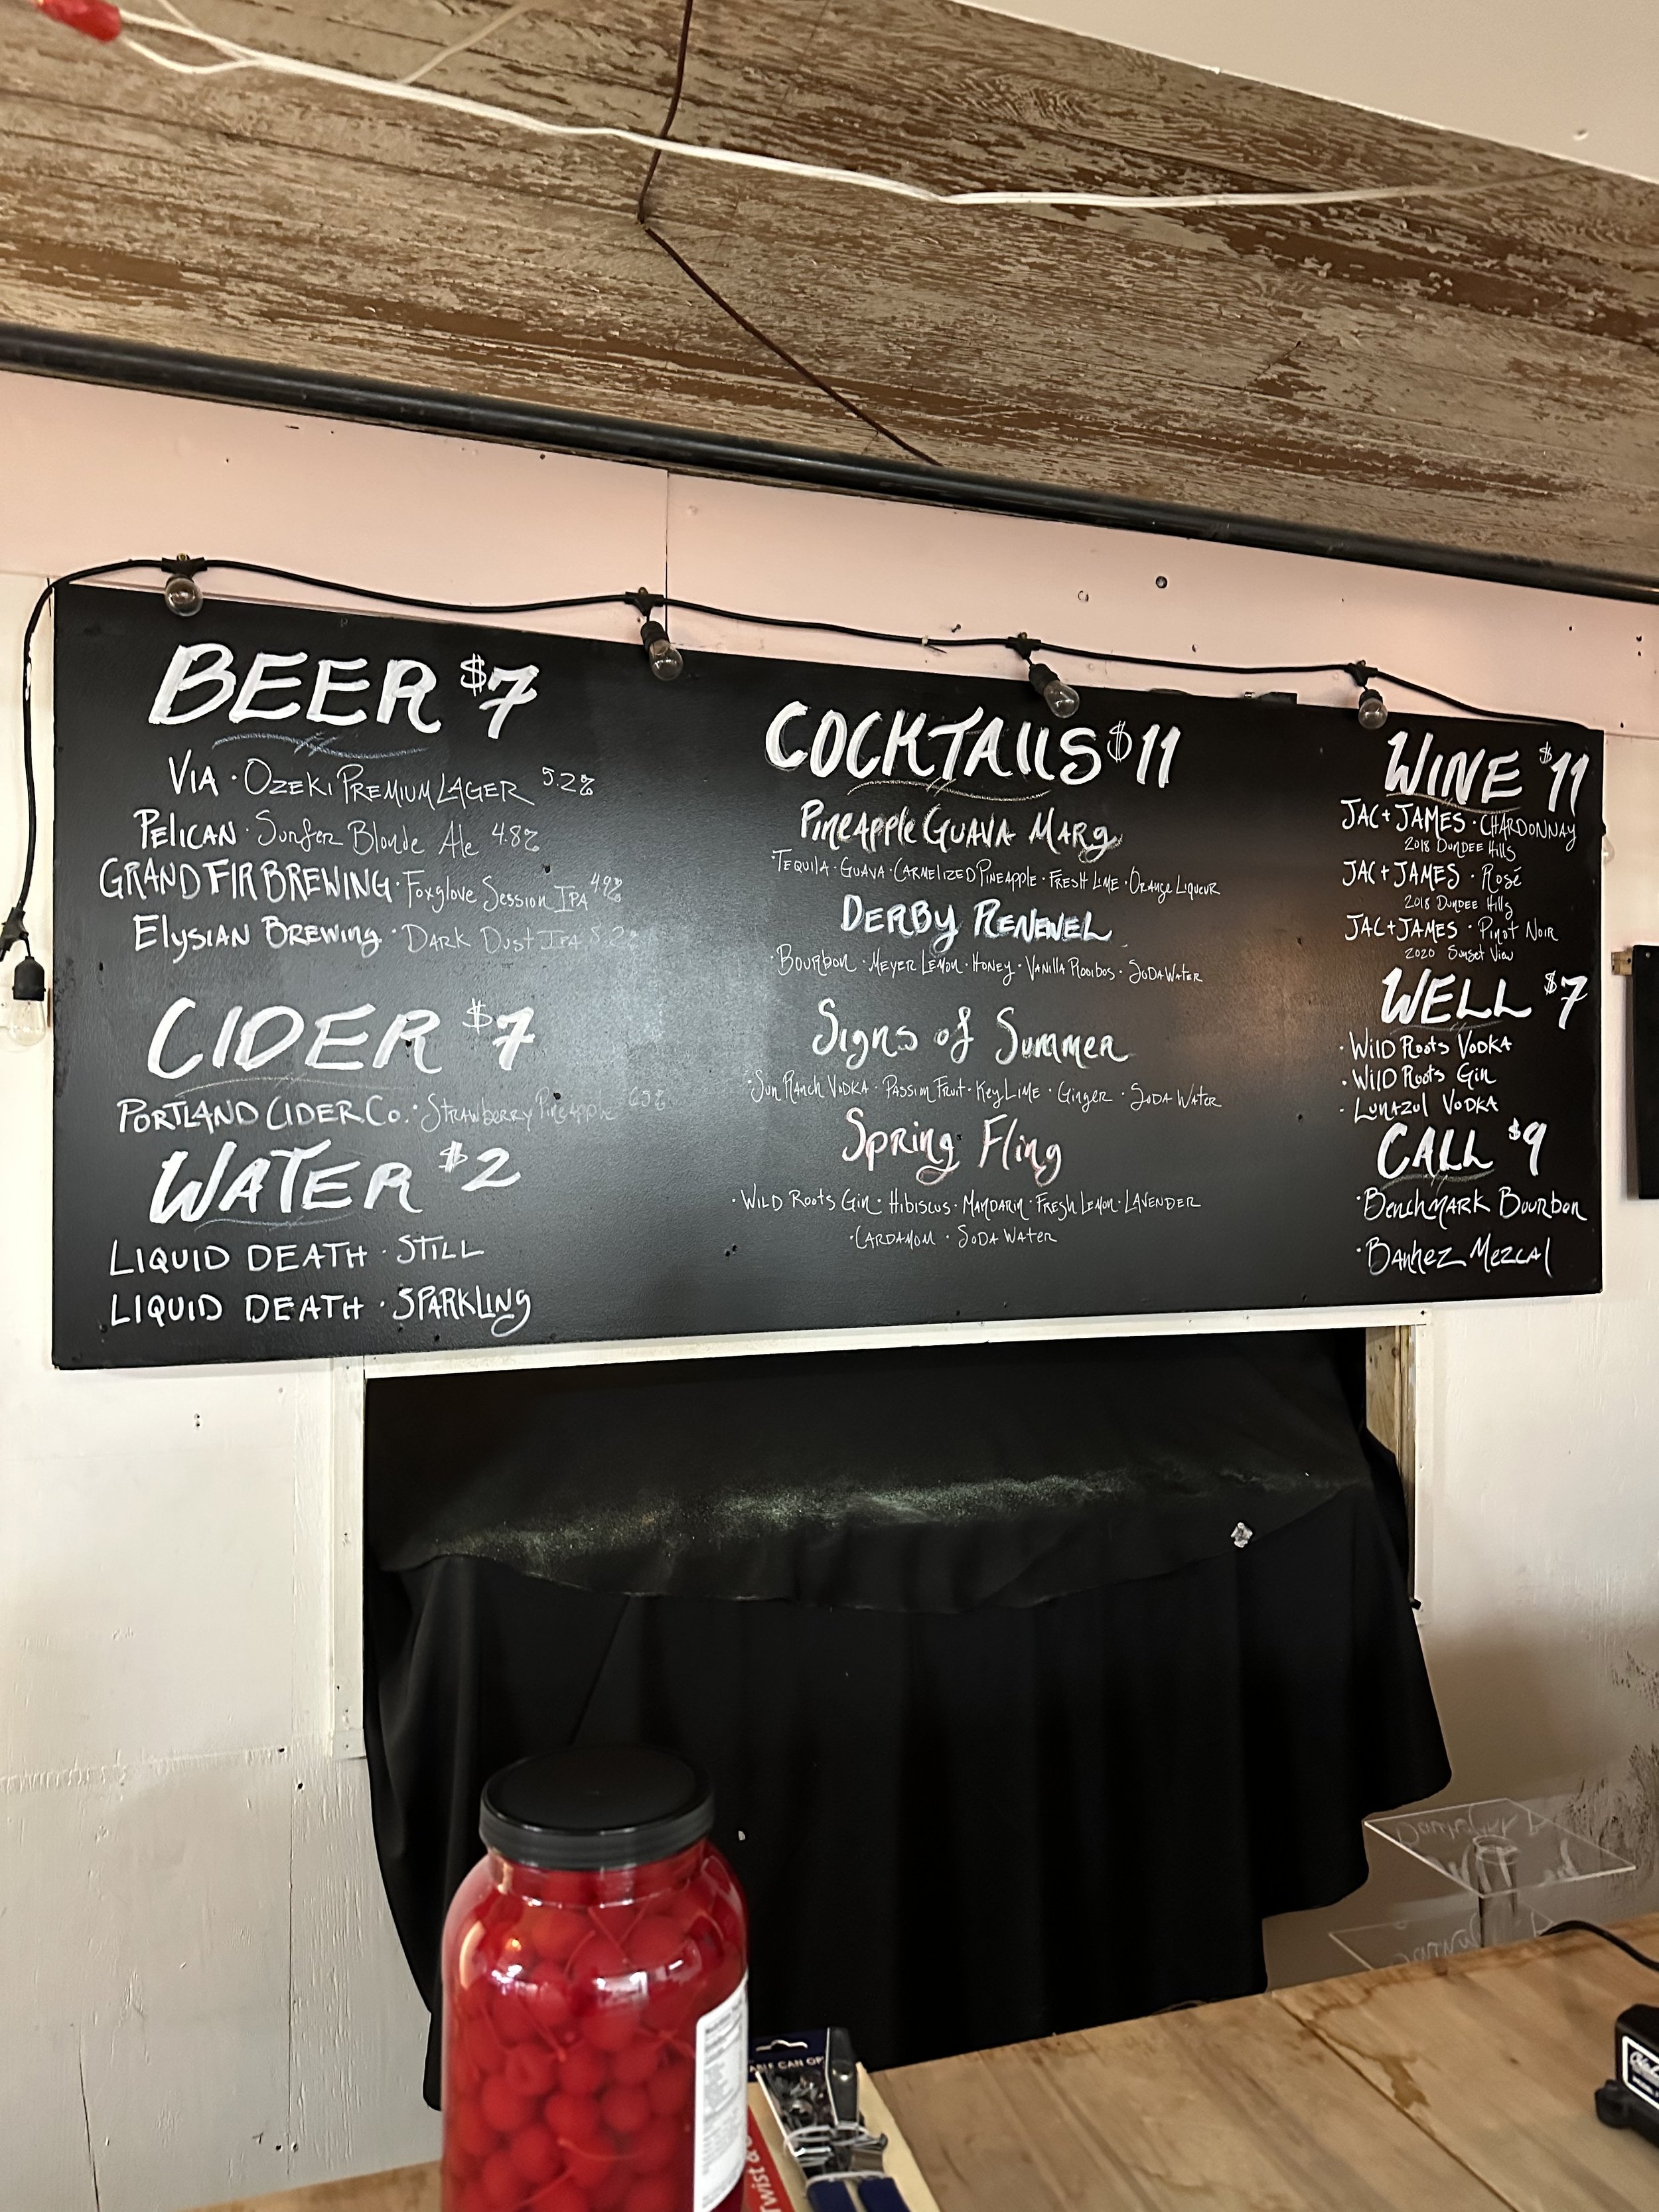 BEER $7
VIA · OZEKI PREMIUM LAGER 5.2%
PELICAN · Surfer Blonde Ale 4.8%
GRAND FIR BREWING · Foxglove Session IPA 4.9%
Elysian Brewing · DARK DUST IPA 8.2%
CIDER $7
PORTLAND CIDER Co. · Strawberry Pineapple 6.5%
WATER $2
LIQUID DEATH · STILL
LIQUID DEATH · SPARKLING
COCKTAILS $11
Pineapple GUAVA MARg
· TEQUILA · GUAVA · CARMELIZED PINEAPPLE · FRESH LIME · Orange Liqueur
DERBY RENEWEL
· Bourbon · Meyer Lemon · Honey · Vanilla Rooibos · SODA WATER
Signs of Summer
· Sun Ranch VODKA · Passion Fruit · Key Lime · Ginger · SODA WATER
Spring Fling
· WILD Roots Gin · Hibiscus · Mandarin · Fresh Lemon · LAVENDER
· CARDAMOM · SODA WATER
WINE $11
JAC + JAMES · CHARDONNAY
2018 Dundee Hills
JAC + JAMES · Rosé
2018 Dundee Hills
JAC + JAMES · Pinot Noir
2020 Sunset View
WELL $7
· WILD Roots VODKA
· WILD Roots Gin
· LUNAZUL VODKA
CALL $9
· Benchmark Bourbon
· Banhez Mezcal
ABLE CAN OP